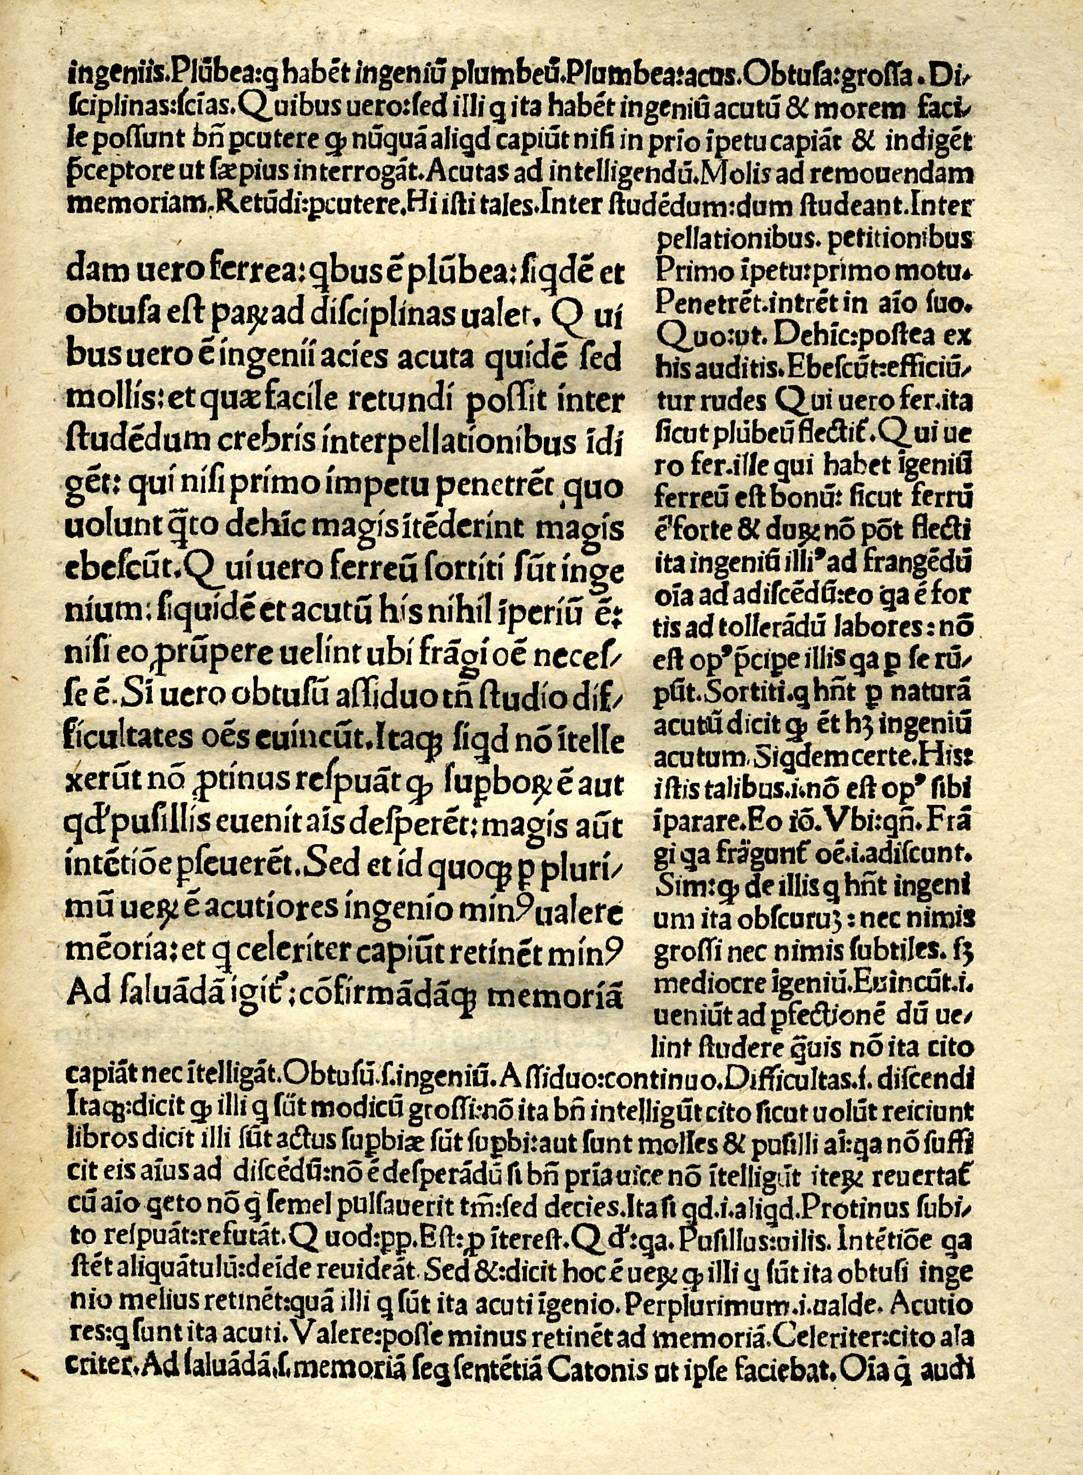 ingeniis.Plūbea:q̄ habēt ingeniū plumbeū.Plumbea:acus.Obtusa:grossa.Di⸗
sciplinas:sciās.Quibus uero:sed illi q̄ ita habēt ingeniū acutū & morem faci⸗
le possunt bn̄ ꝑcutere ꝙ nūquā aliqd capiūt nisi in prīo īpetu capiāt & indigēt
p̄ceptore ut sæpius interrogāt.Acutas ad intelligendū.Molis ad remouendam
memoriam.Retūdi:ꝑcutere.Hi isti tales.Inter studēdum:dum studeant.Inter
pellationibus. petitionibus
Primo īpetu:primo motu.
Penetrēt.intrēt in aīo suo.
Quo:ut. Dehīc:postea ex
his auditis.Ebescūt:efficiū⸗
tur rudes Qui uero fer.ita
sicut plūbeū flectit᷑.Qui ue
ro fer.ille qui habet īgeniū
ferreū est bonū: sicut ferrū
ē forte & duꝝ nō pōt flecti
ita ingeniū illiꝰ ad frangēdū
oīa ad adiscēdū:eo qa ē for
tis ad tollerādū labores: nō
est opꝰ p̄cipe illis qa ꝑ se rū⸗
pūt.Sortiti.q̄ hn̄t ꝑ naturā
acutū dicit ꝙ ēt hꝫ ingeniū
acutum.Siqdem certe.His:
istis talibus.i.nō est opꝰ sibi
īparare.Eo iō.Vbi:qn̄.Frā
gi qa frāgunt᷑ oē.i.adiscunt.
Sim:ꝙ de illis q̄ hn̄t ingeni
um ita obscuruꝫ: nec nimis
grossi nec nimis subtiles. sꝫ
mediocre īgeniū.Euincūt.i.
ueniūt ad ꝑfectionē dū ue⸗
lint studere q̄uis nō ita cito
dam uero ferrea: qbus ē plūbea: siqdē et
obtusa est paꝝ ad disciplinas ualet. Qui
bus uero ē ingenii acies acuta quidē sed
mollis: et quæ facile retundi possit inter
studēdum crebris interpellationibus īdi
gēt: qui nisi primo impetu penetrēt quo
uolunt q̄to dehīc magis ītēderint magis
ebescūt.Qui uero ferreū sortiti sūt inge
nium: siquidē et acutū his nihil īperiū ē:
nisi eo ꝓrūpere uelint ubi frāgi oē neces⸗
se ē.Si uero obtusū assiduo tn̄ studio dif⸗
ficultates oēs euincūt.Itaqꝫ siqd nō ītelle
xerūt nō ꝓtinus respuāt ꝙ suꝑboꝝ ē aut
qd᷑ pusillis euenit aīs desperēt: magis aūt
intētiōe ꝑseuerēt.Sed et id quoqꝫ ꝑ pluri⸗
mū ueꝝ ē acutiores ingenio minꝰ ualere
mēoria: et q̄ celeriter capiūt retinēt minꝰ
Ad saluādā igit᷑; cōfirmādāqꝫ memoriā
capiāt nec ītelligāt.Obtusū.s.ingeniū.Assiduo:continuo.Difficultas.s. discendi
Itaqꝫ:dicit ꝙ illi q̄ sūt modicū grossi:nō ita bn̄ intelligūt cito sicut uolūt reiciunt
libros dicit illi sūt actus suꝑbiæ sūt suꝑbi:aut sunt molles & pusilli aī:qa nō suffi
cit eis aīus ad discēdū:nō ē desperādū si bn̄ prīa uice nō ītelligūt iteꝝ reuertat᷑
cū aīo geto nō q̄ semel pulsauerit tm̄:sed decies.Ita si qd.i.aliqd.Protinus subi⸗
to respuāt:refutāt.Quod:ꝓp.Est:ꝓ īterest.Qd᷑:qa. Pusillus:uilis. Intētiōe qa
stēt aliquātulū:deīde reuideāt.Sed &:dicit hoc ē ueꝝ ꝙ illi q̄ sūt ita obtusi inge
nio melius retinēt:quā illi q̄ sūt ita acuti īgenio.Perplurimum.i.ualde. Acutio
res:q̄ sunt ita acuti.Valere:posse minus retinēt ad memoriā.Celeriter:cito ala
criter.Ad saluādā.s.memoriā seq sentētiā Catonis ut ipse faciebat.Oīa q̄ audi